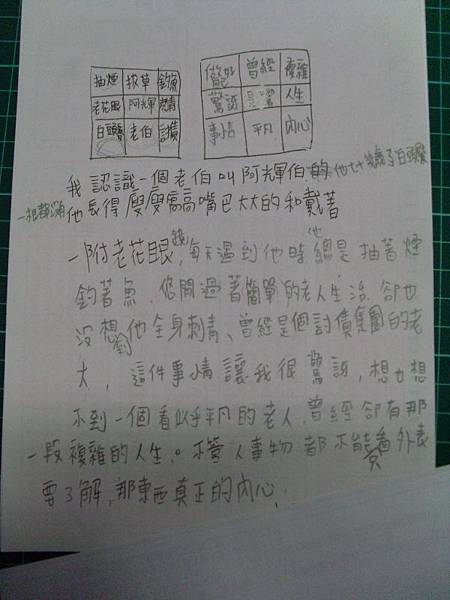 抽煙 拔草 釣魚
老花眼 阿輝 刺青
白頭髮 老伯 討債
曾經 複雜
驚訝 人生
事情 平凡 內心
我認識一個老伯叫阿輝伯 他七十幾歲了白頭髮
他長得瘦瘦高高嘴巴大大的和戴著
一附老花眼鏡,每天遇到他時他總是抽著煙
釣著魚、悠閒過著簡單的老人生活,卻也
沒想到他全身刺青、曾經是個討債集團的老
大,這件事情讓我很驚訝,想也想
不到一個看似乎平凡的老人,曾經卻有那
一段複雜的人生。不管人事物都不能看外表
要了解,那東西真正的內心.